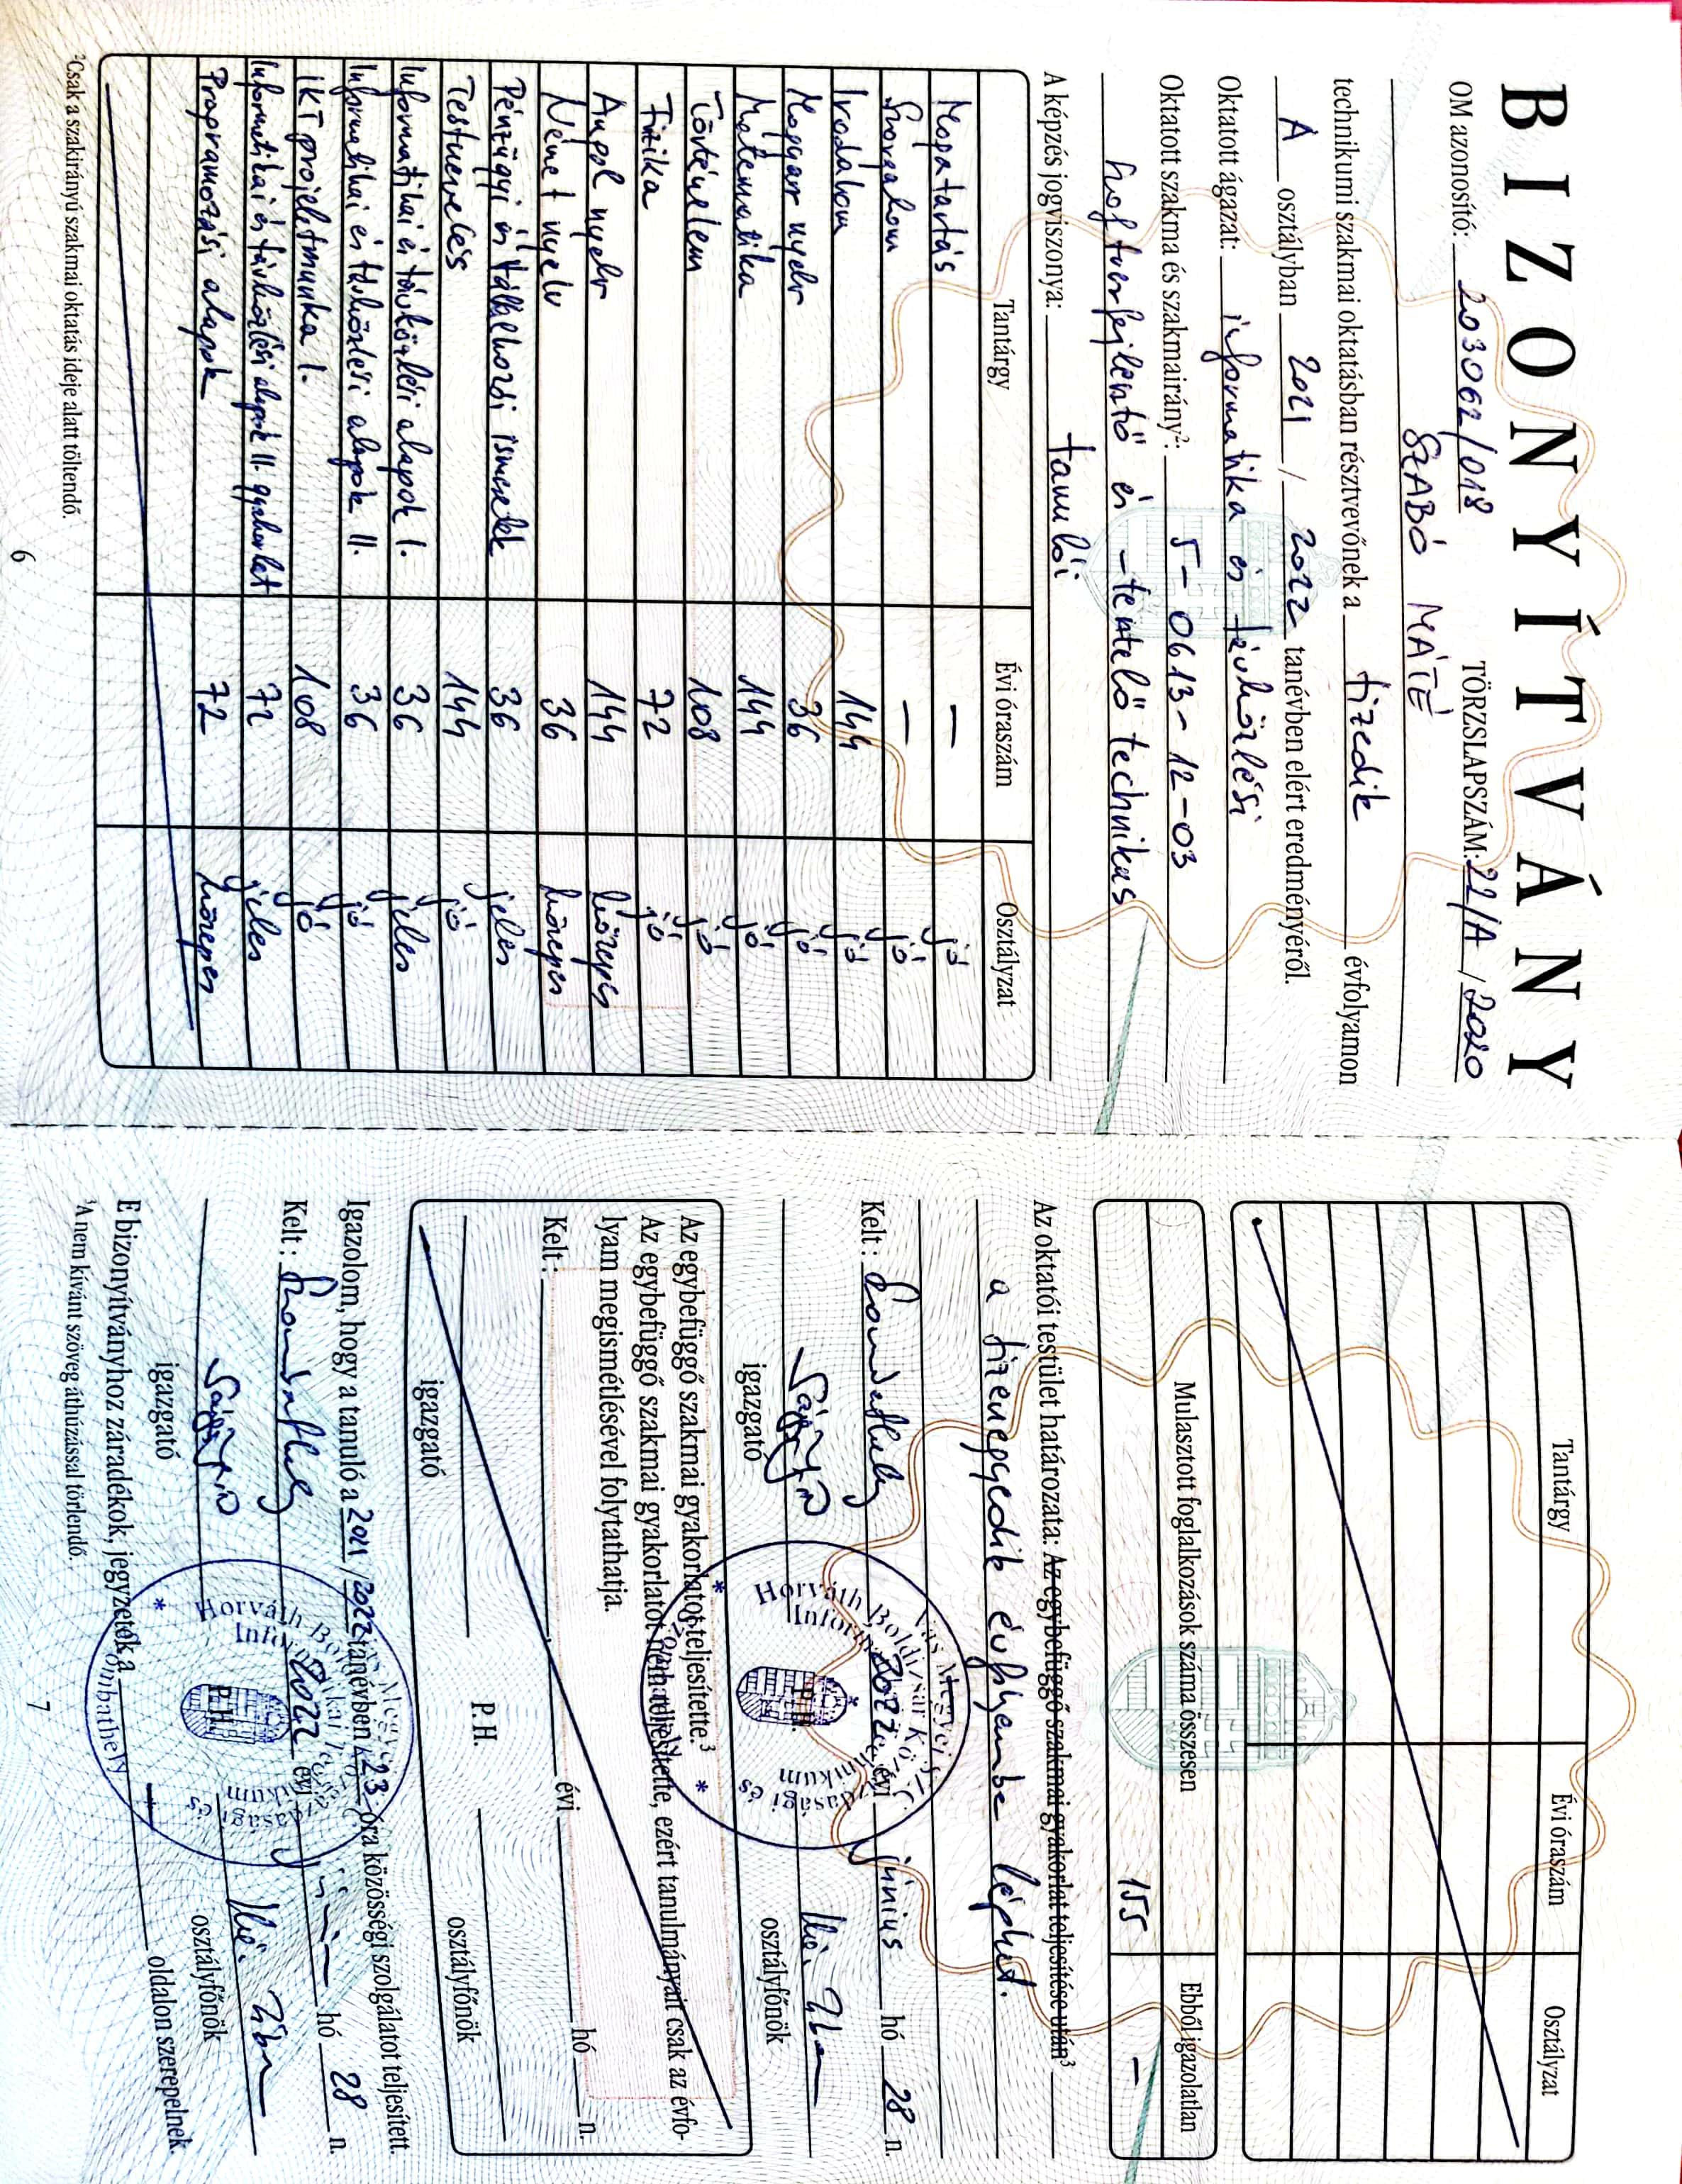 BIZONYÍTVÁNY
OM azonosító: 203062/018 TÖRZSLAPSZÁM: 22/A / 2020
SZABÓ MÁTÉ
technikumi szakmai oktatásban résztvevőnek a tizedik évfolyamon
A osztályban 2021 / 2022 tanévben elért eredményéről.
Oktatott ágazat: informatika és távközlési
Oktatott szakma és szakmairány²: 5-0613-12-03
Szoftverfejlesztő és -tesztelő technikus
A képzés jogviszonya: tanulói
Tantárgy Évi óraszám Osztályzat
Magatartás — jó
Szorgalom — jó
Irodalom 144 jó
Magyar nyelv 36 jó
Matematika 144 jó
Történelem 108 jó
Fizika 72 jó
Angol nyelv 144 közepes
Német nyelv 36 közepes
Pénzügyi és vállalkozói ismeretek 36 jeles
Testnevelés 144 jó
Informatikai és távközlési alapok I. 36 jeles
Informatikai és távközlési alapok II. 36 jó
IKT projektmunka I. 108 jó
Informatikai és távközlési alapok II. gyakorlat 72 jeles
Programozási alapok 72 közepes
²Csak a szakirányú szakmai oktatás ideje alatt töltendő.
6
Tantárgy Évi óraszám Osztályzat
Mulasztott foglalkozások száma összesen Ebből igazolatlan
155 —
Az oktatói testület határozata: Az egybefüggő szakmai gyakorlat teljesítése után³
a tizenegyedik évfolyamba léphet.
Kelt: Szombathely 2022 évi június hó 28 n.
P. H.
igazgató osztályfőnök
Vas Megyei SZC
Horváth Boldizsár Közgazdasági és
Informatikai Technikum
Szombathely
Az egybefüggő szakmai gyakorlatot teljesítette.³
Az egybefüggő szakmai gyakorlatot nem teljesítette, ezért tanulmányait csak az évfo-
lyam megismétlésével folytathatja.
Kelt: évi hó n.
P. H.
igazgató osztályfőnök
Igazolom, hogy a tanuló a 2021 / 2022 tanévben 23 óra közösségi szolgálatot teljesített.
Kelt: Szombathely 2022 évi június hó 28 n.
P. H.
igazgató osztályfőnök
Vas Megyei
Horváth Boldizsár Közgazdasági és
Informatikai Technikum
Szombathely
E bizonyítványhoz záradékok, jegyzetek a — oldalon szerepelnek.
³A nem kívánt szöveg áthúzással törlendő.
7